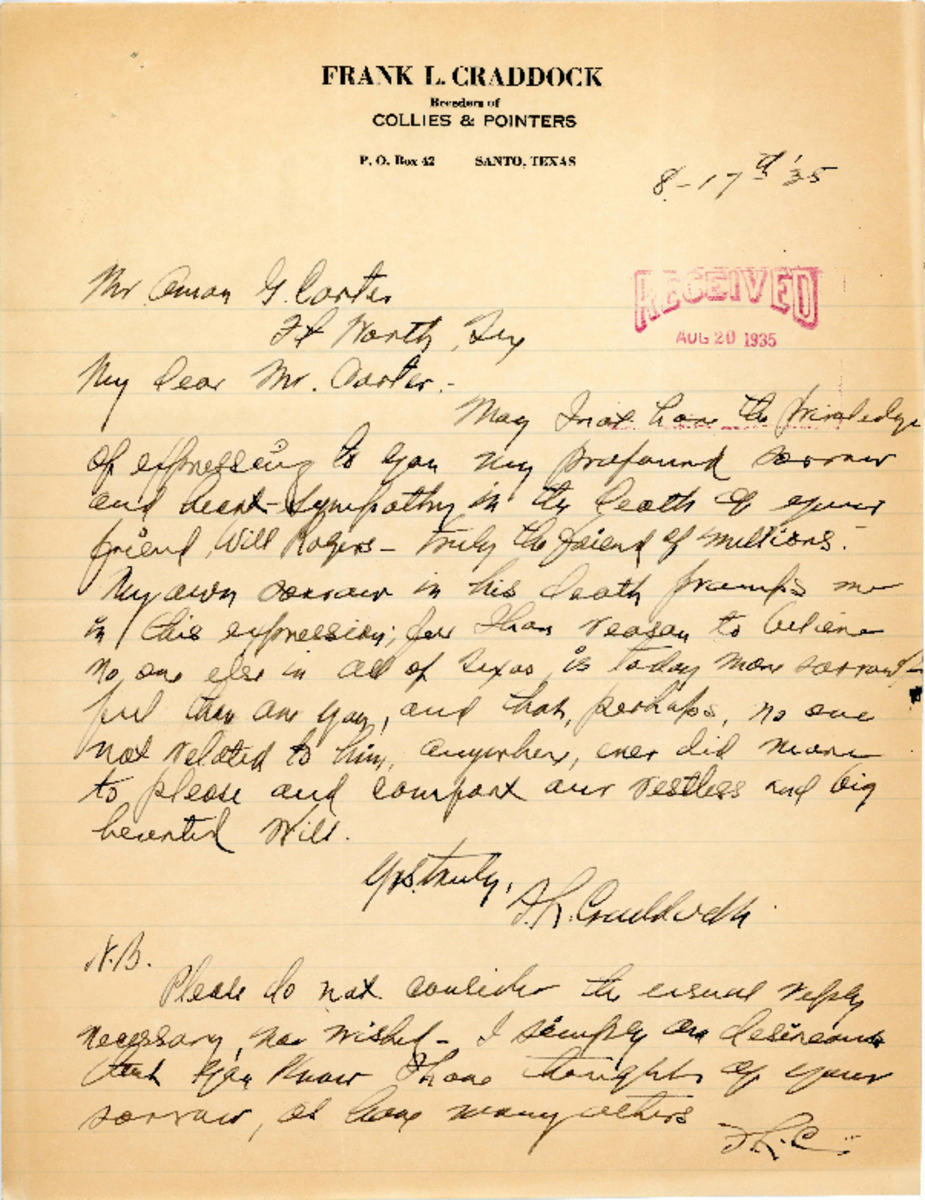 FRANK L. CRADDOCK
Breeders of
COLLIES & POINTERS
P. O. Box 42 SANTO, TEXAS
8-17th '35
Mr. Amon G. Carter
Ft Worth, Tex
RECEIVED
AUG 20 1935
My dear Mr. Carter.-
May I not have the priviledge
of expressing to you my profound sorrow
and heart-sympathy in the death of your
friend, Will Rogers - truly the friend of millions.
My own sorrow in his death prompts me
in this expression; for I have reason to believe
no one else in all of Texas is today more sorrow-
ful than are you, and that, perhaps, no one
not related to him, anywhere, ever did more
to please and comfort our restless and big
hearted Will.
Yrs. truly,
F. L. Craddock.
N.B.
Please do not consider the usual reply
necessary, nor wished - I simply am desireous
that you know I have thought of your
sorrow, as have many others
F. L. C.